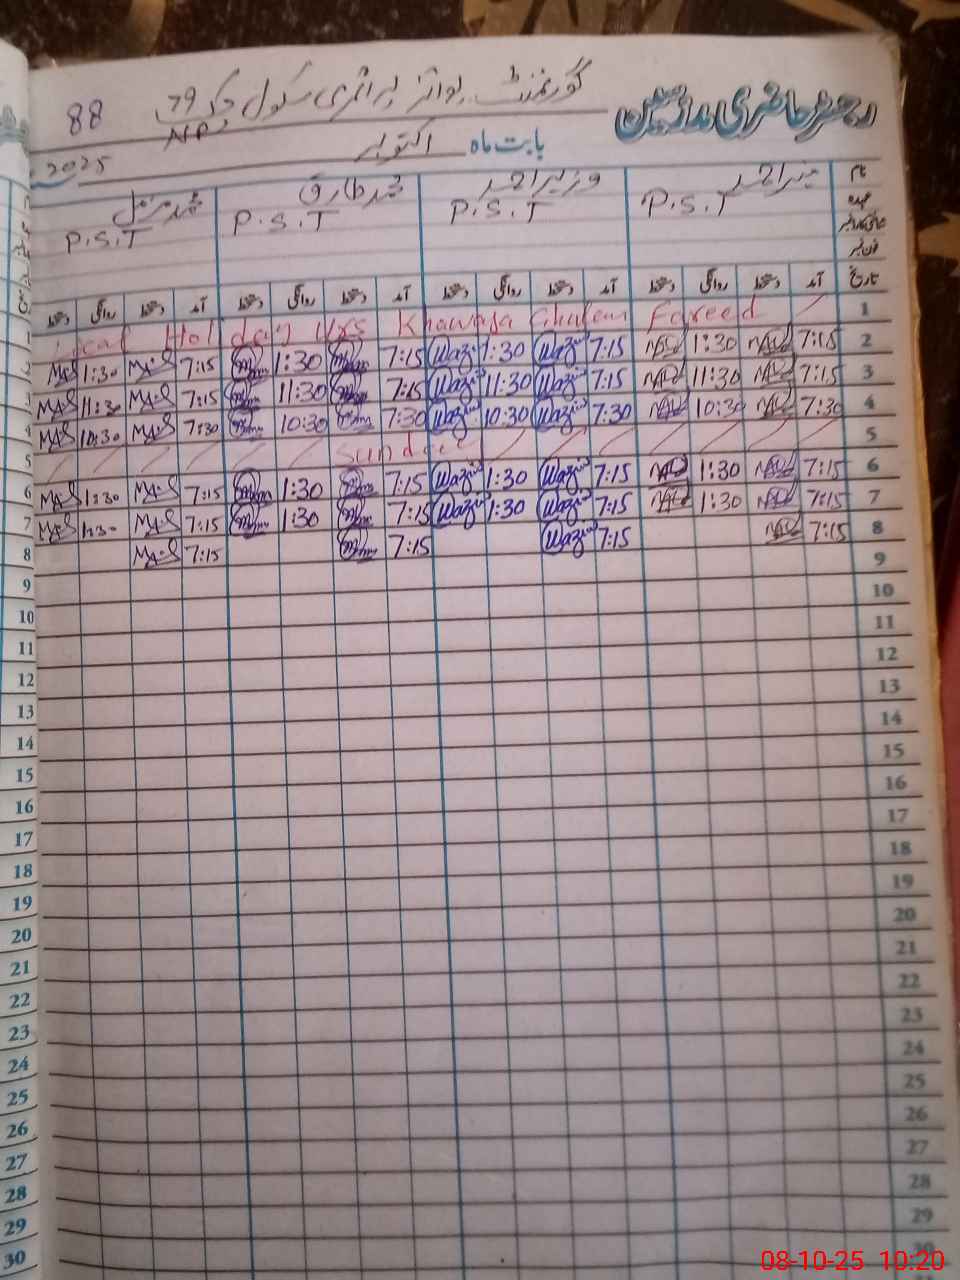 88 گورنمنٹ بوائز پرائمری سکول چک 79
NP
رجسٹر حاضری مدرسین
بابت ماہ اکتوبر 2025
نام منیر احمد وزیر احمد محمد طارق محمد مزمل
عہدہ P.S.T P.S.T P.S.T P.S.T
تاریخ آمد دستخط روانگی دستخط آمد دستخط روانگی دستخط آمد دستخط روانگی دستخط آمد دستخط روانگی دستخط
1 Local Holiday Urs Khawaja Ghulam Fareed
2 7:15 1:30 7:15 Wazir 1:30 Wazir 7:15 1:30 7:15 MAS 1:30 MAS
3 7:15 11:30 7:15 Wazir 11:30 Wazir 7:15 11:30 7:15 MAS 11:30 MAS
4 7:30 10:30 7:30 Wazir 10:30 Wazir 7:30 10:30 7:30 MAS 10:30 MAS
5 Sunday
6 7:15 1:30 7:15 Wazir 1:30 Wazir 7:15 1:30 7:15 MAS 1:30 MAS
7 7:15 1:30 7:15 Wazir 1:30 Wazir 7:15 1:30 7:15 MAS 1:30 MAS
8 7:15 7:15 Wazir 7:15 7:15 MAS
9
10
11
12
13
14
15
16
17
18
19
20
21
22
23
24
25
26
27
28
29
30
08-10-25 10:20